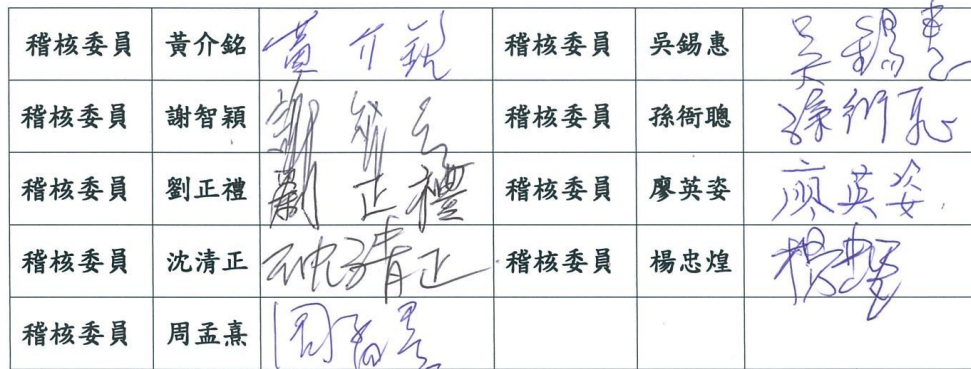 稽核委員 黃介銘 黃介銘 稽核委員 吳錫惠 吳錫惠
稽核委員 謝智穎 稽核委員 孫衙聰
稽核委員 劉正禮 劉正禮 稽核委員 廖英姿 廖英姿
稽核委員 沈清正 沈清正 稽核委員 楊忠煌 楊忠煌
稽核委員 周孟熹 周孟熹